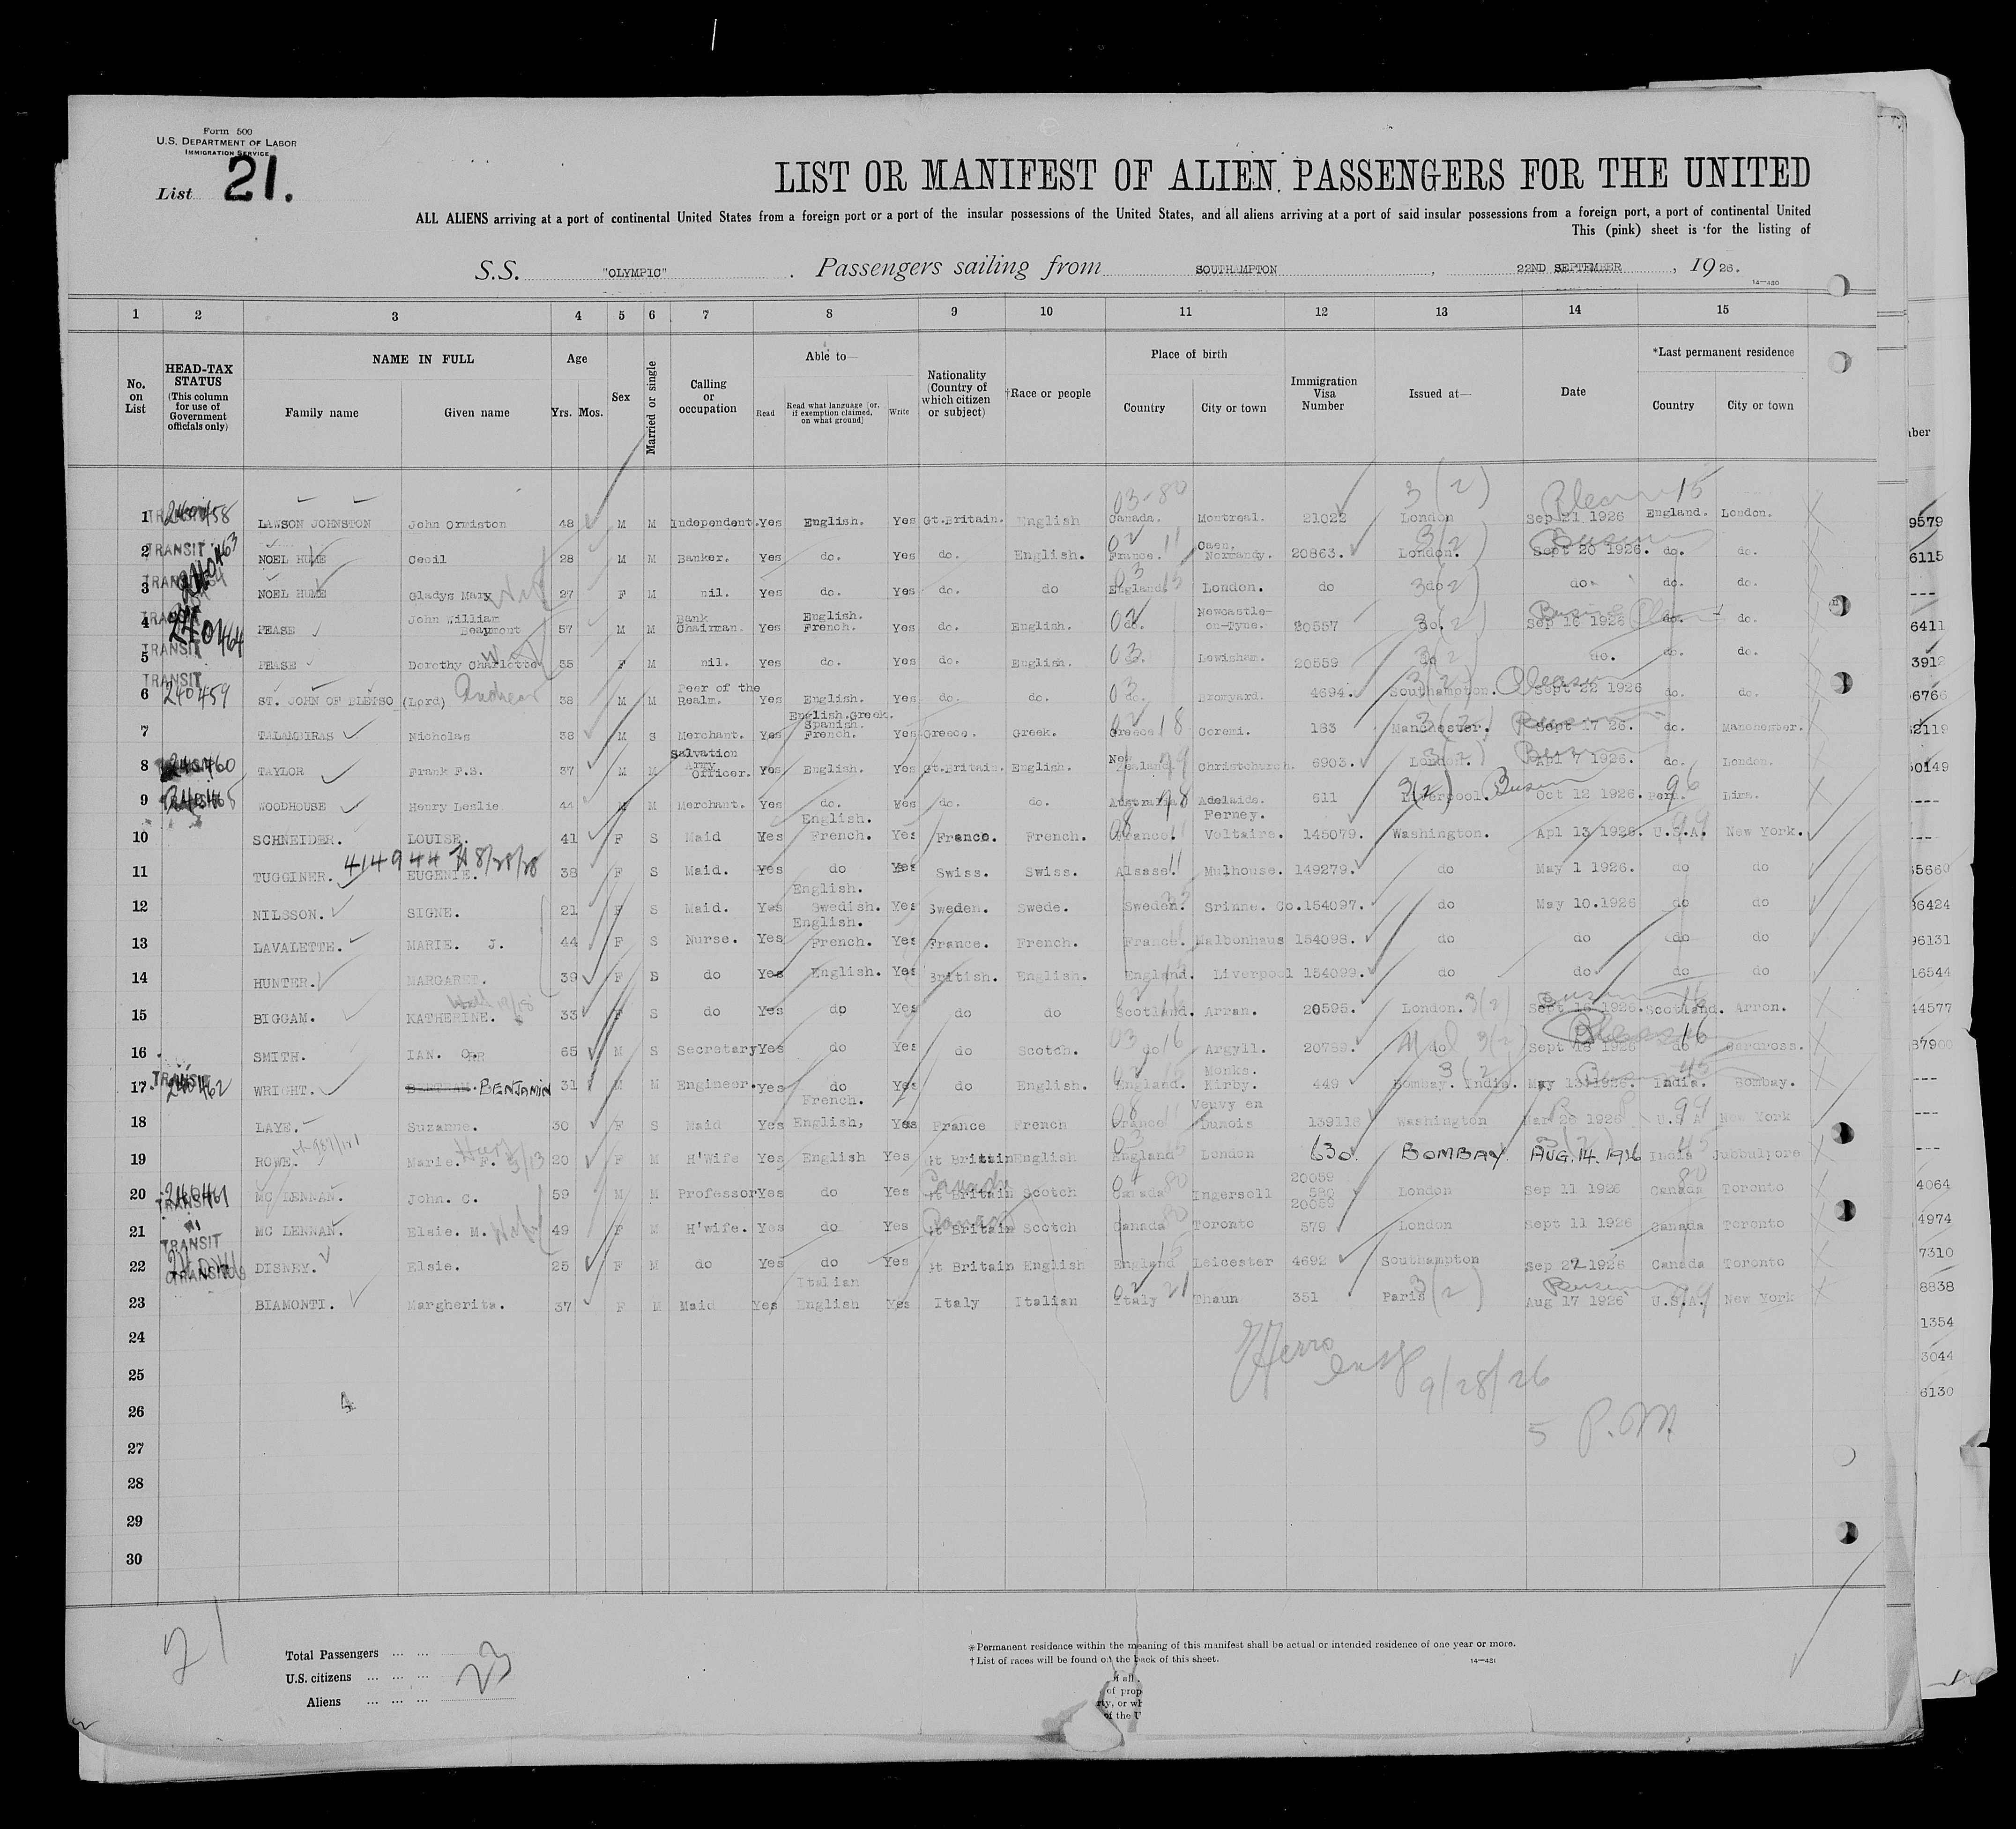 Form 500
U.S. DEPARTMENT OF LABOR
IMMIGRATION SERVICE
List 21.
LIST OR MANIFEST OF ALIEN PASSENGERS FOR THE UNITED
ALL ALIENS arriving at a port of continental United States from a foreign port or a port of the insular possessions of the United States, and all aliens arriving at a port of said insular possessions from a foreign port, a port of continental United
This (pink) sheet is for the listing of
S.S. "OLYMPIC" . Passengers sailing from SOUTHAMPTON , 22ND SEPTEMBER , 1926.
14-430
1 2 3 4 5 6 7 8 9 10 11 12 13 14 15
No. on List
HEAD-TAX STATUS (This column for use of Government officials only)
NAME IN FULL Family name Given name
Age Yrs. Mos.
Sex
Married or single
Calling or occupation
Able to— Read Read what language [or, if exemption claimed, on what ground] Write
Nationality (Country of which citizen or subject)
†Race or people
Place of birth Country City or town
Immigration Visa Number
Issued at—
Date
*Last permanent residence Country City or town
1 TRANSIT LAWSON JOHNSTON John Ormiston 48 M M Independent. Yes English. Yes Gt.Britain. English Canada. Montreal. 21022 London Sep 21 1926 England. London.
2 TRANSIT NOEL HUME Cecil 28 M M Banker. Yes do. Yes do. English. France. Caen. Normandy. 20863. London. Sept 20 1926. do. do.
3 TRANSIT NOEL HUME Gladys Mary 27 F M nil. Yes do. Yes do. do England. London. do do do. do. do.
4 TRANSIT 240464 PEASE John William Beaumont 57 M M Bank Chairman. Yes English. French. Yes do. English. do. Newcastle-on-Tyne. 20557 do. Sep 16 1926 do. do.
5 TRANSIT PEASE Dorothy Charlotte 55 F M nil. Yes do. Yes do. English. do. Lewisham. 20559 do do. do. do.
6 TRANSIT 240459 ST. JOHN OF BLETSO (Lord) 38 M M Peer of the Realm. Yes English. Yes do. do. do. Bromyard. 4694. Southampton. Sept 22 1926 do. do.
7 TALAMBIRAS Nicholas 38 M S Merchant. Yes English.Greek. Spanish. French. Yes Greece. Greek. Greece Coremi. 183 Manchester. Sept 17 26. do. Manchester.
8 TAYLOR Frank F.S. 37 M M Salvation Army Officer. Yes English. Yes Gt.Britain. English. New Zealand. Christchurch. 6903. London. Apl 7 1926. do. London.
9 WOODHOUSE Henry Leslie 44 M M Merchant. Yes do. Yes do. do. Australia Adelaide. 611 Liverpool. Oct 12 1926. Peru. Lima.
10 SCHNEIDER. LOUISE. 41 F S Maid Yes English. French. Yes France. French. France. Ferney. Voltaire. 145079. Washington. Apl 13 1926. U.S.A. New York.
414944 8/28/28
11 TUGGINER. EUGENIE. 38 F S Maid. Yes do Yes Swiss. Swiss. Alsase. Mulhouse. 149279. do May 1 1926. do do
12 NILSSON. SIGNE. 21 F S Maid. Yes English. Swedish. Yes Sweden. Swede. Sweden. Srinne. Co. 154097. do May 10.1926 do do
13 LAVALETTE. MARIE. J. 44 F S Nurse. Yes English. French. Yes France. French. France. Malbonhaus 154098. do do do do
14 HUNTER. MARGARET. 39 F S do Yes English. Yes British. English. England. Liverpool 154099. do do do do
15 BIGGAM. KATHERINE. 33 F S do Yes do Yes do do Scotland. Arran. 20595. London. Sept 16 1926. Scotland. Arron.
16 SMITH. IAN. ORR 65 M S Secretary Yes do Yes do Scotch. do Argyll. 20789. do Sept 18 1926 do Cardross.
17 TRANSIT 240462 WRIGHT. BENJAMIN 31 M M Engineer. Yes do Yes do English. England. Monks. Kirby. 449 Bombay. India. May 13 1926. India. Bombay.
18 LAYE. Suzanne. 30 F S Maid Yes French. English, Yes France French France Veuvy en Dunois 139118 Washington Mar 26 1926 U.S.A New York
19 ROWE. Marie. F. 20 F M H'Wife Yes English Yes Gt Britain English England London 630. BOMBAY. AUG. 14. 1926 India Jubbulpore
20 TRANSIT 240461 MC LENNAN. John. C. 59 M M Professor Yes do Yes Canada Gt Britain Scotch Canada Ingersoll 20059 580 London Sep 11 1926 Canada Toronto
21 TRANSIT MC LENNAN. Elsie. M. Wife 49 F M H'wife. Yes do Yes Canada Gt Britain Scotch Canada Toronto 20059 579 London Sept 11 1926 Canada Toronto
22 TRANSIT DISNEY. Elsie. 25 F M do Yes do Yes Gt Britain English England Leicester 4692 Southampton Sep 22 1926 Canada Toronto
23 BIAMONTI. Margherita. 37 F M Maid Yes Italian English Yes Italy Italian Italy Thaun 351 Paris Aug 17 1926 U.S.A. New York
24
25
26
27
28
29
30
9/28/26
5 P.M.
21
Total Passengers ... ...
U.S. citizens ... ... ...
Aliens ... ... ...
23
*Permanent residence within the meaning of this manifest shall be actual or intended residence of one year or more.
†List of races will be found on the back of this sheet.
14-431
of all
of prop
rty, or wh
of the U
ber
9579
6115
---
6411
3912
6766
2119
0149
---
---
5660
6424
6131
16544
44577
---
---
---
4064
4974
7310
8838
1354
3044
6130